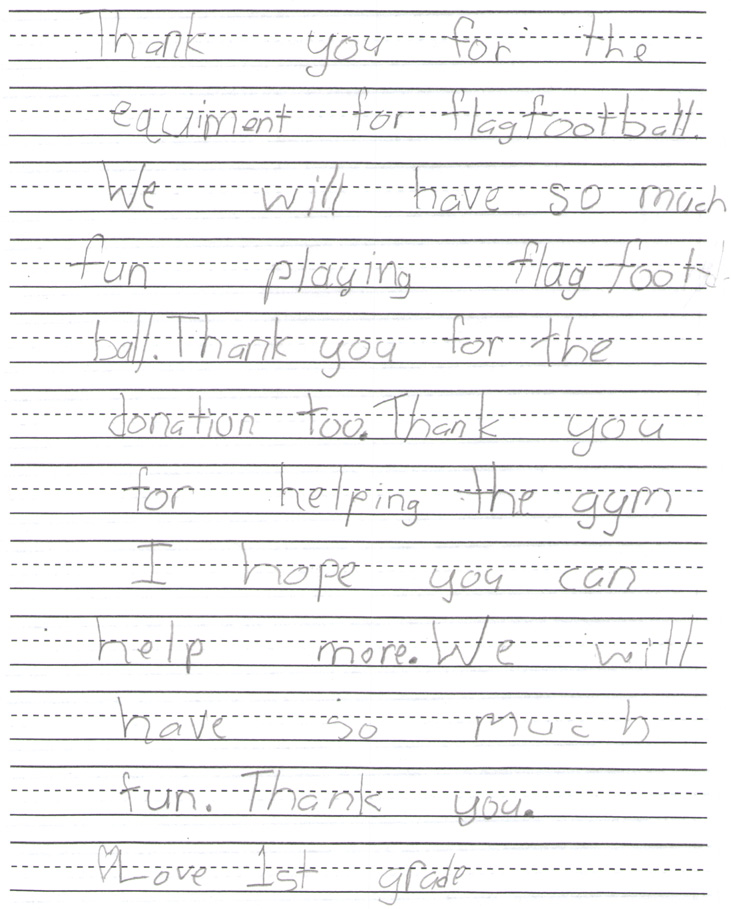 Thank you for the
equiment for flag football.
We will have so much
fun playing flag foot-
ball. Thank you for the
donation too. Thank you
for helping the gym
I hope you can
help more. We will
have so much
fun. Thank you.
♡Love 1st grade